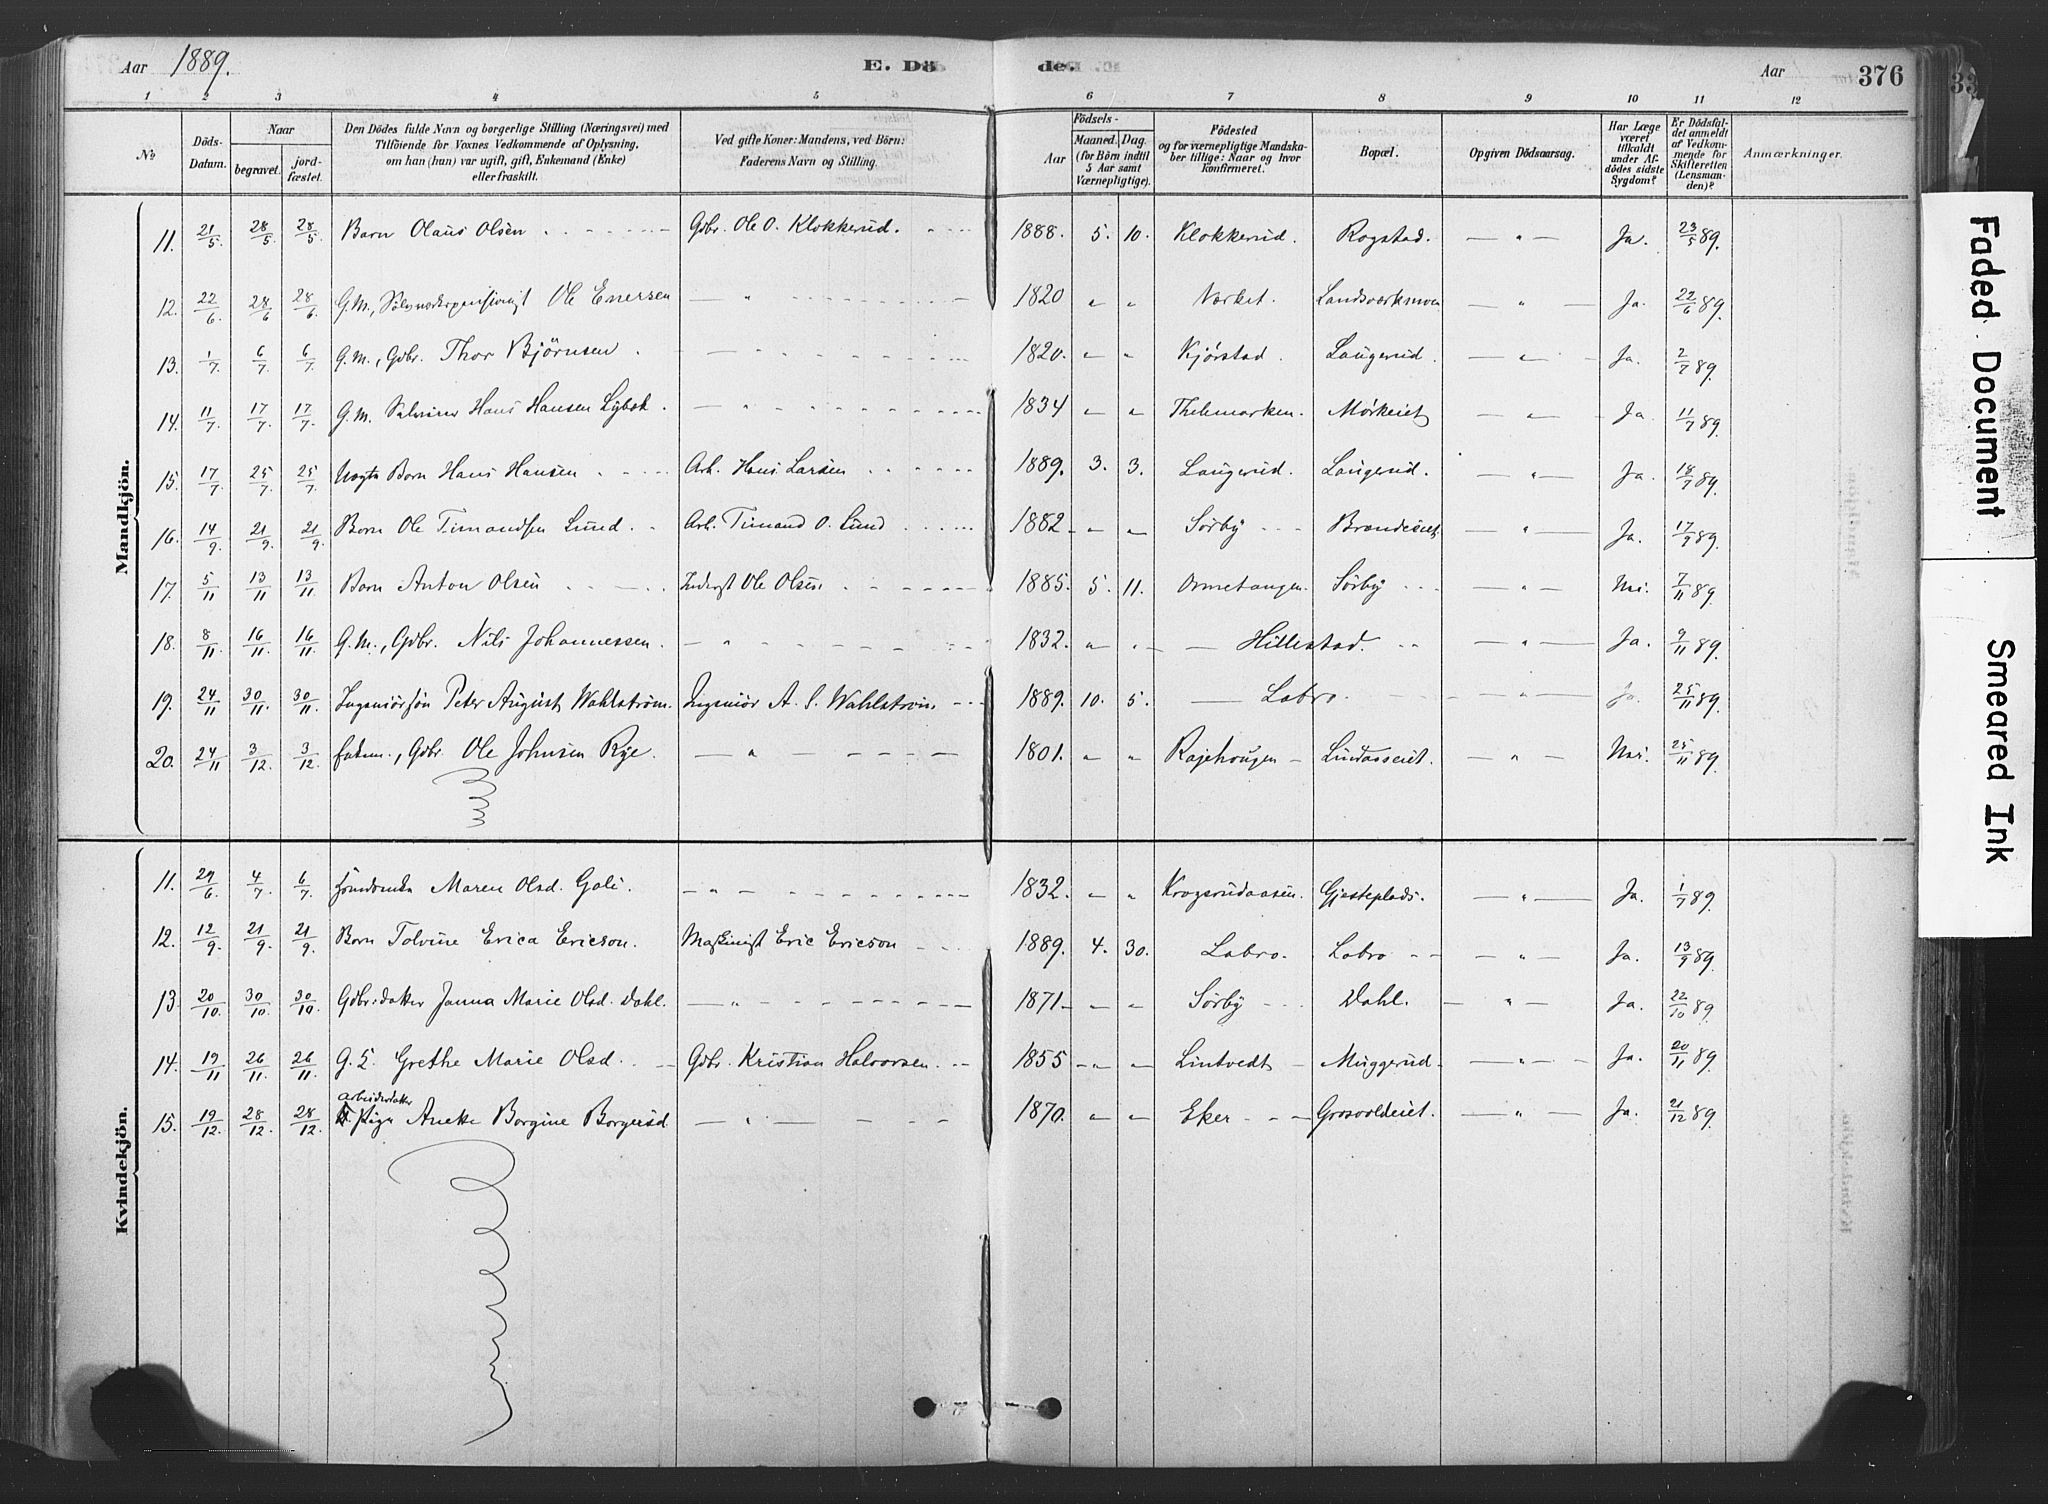 Aar 1889.
E. Döde.
Aar
376
1 2 3 4 5 6 7 8 9 10 11 12
No.
Döds-Datum.
Naar
begravet.
jord-fæstet.
Den Dödes fulde Navn og borgerlige Stilling (Næringsvei) med
Tilföiende for Voxnes Vedkommende af Oplysning,
om han (hun) var ugift, gift, Enkemand (Enke)
eller fraskilt.
Ved gifte Koner: Mandens, ved Börn:
Faderens Navn og Stilling.
Födsels-
Aar
Maaned. Dag.
(for Börn indtil
5 Aar samt
Værnepligtige).
Födested
og for værnepligtige Mandska-
ber tillige: Naar og hvor
konfirmeret.
Bopæl.
Opgiven Dödsaarsag.
Har Læge
været
tilkaldt
under Af-
dödes sidste
Sygdom?
Er Dödsfal-
det anmeldt
af Vedkom-
mende for
Skifteretten
(Lensman-
den)?
Anmærkninger.
Mandkjön.
11. 21/5 28/5 28/5 Barn Olaus Olsen Gdbr. Ole O. Klokkerud. 1888. 5. 10. Klokkerud. Rogstad. — " — Ja. 23/5 89.
12. 22/6 28/6 28/6 G.M., Ole Enersen — " — 1820 " " Værket. Landsværksmoen — " — Ja. 22/6 89.
13. 1/7 6/7 6/7 G.M., Gdbr. Thor Björnsen — " — 1820. " " Kjørstad. Laugerud. — " — Ja. 2/7 89.
14. 11/7 17/7 17/7 G.M. Hans Hansen — " — 1834 " " Thelemarken. Mörkeiet — " — Ja. 11/7 89.
15. 17/7 25/7 25/7 Uægte Barn Hans Hansen Arb. Hans Larsen 1889. 3. 3. Laugerud. Laugerud. — " — Ja. 18/7 89.
16. 14/9 21/9 21/9 Barn Ole Timandsen Lund Arb. Timand O. Lund 1882 " " Sörby Brændeseiet — " — Ja. 17/9 89.
17. 5/11 13/11 13/11 Barn Anton Olsen Inderst Ole Olsen 1885. 5. 11. Ormetangen. Sörby — " — Nei. 7/11 89.
18. 8/11 16/11 16/11 G.M., Gdbr. Nils Johannessen. — " — 1832. " " — Hillestad. — " — Ja. 9/11 89.
19. 24/11 30/11 30/11 Ingeniörsön Peter August Wahlström. Ingeniör A. S. Wahlström 1889. 10. 5. — Labro. — " — Ja. 25/11 89.
20. 24/11 3/12 3/12 Enkem., Gdbr. Ole Johnsen Rye. — " — 1801. " " Rajehougen Lindaaseiet. — " — Nei. 25/11 89.
Kvindekjön.
11. 29/6 4/7 6/7 Maren Olsd. Gali. — " — 1832. " " Krogsrudaasen. Gjesteplads. — " — Ja. 1/7 89.
12. 12/9 21/9 21/9 Barn Tolvine Erica Ericson. Maskinist Eric Ericson 1889. 4. 30. Labro. Labro — " — Ja. 13/9 89.
13. 20/10 30/10 30/10 Gdbr:datter Janna Marie Olsd. Dahl. — " — 1871 " " Sörby Dahl. — " — Ja. 22/10 89.
14. 19/11 26/11 26/11 G. K. Grethe Marie Olsd. Gdbr. Kristian Halvorsen. 1855 " " Lintvedt Muggerud — " — Ja. 20/11 89.
arbeiderdatter
15. 19/12 28/12 28/12 Pige Anette Borgine Borgersd — " — 1870. " " Eker Grosvoldeiet. — " — Ja. 21/12 89.
Faded Document
Smeared Ink